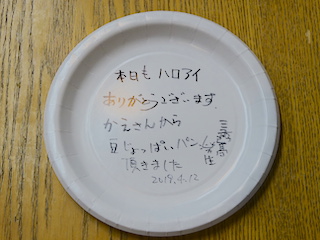 本日も ハロアイ
ありがとうございます
かえさんから
豆じょっぱいパン
頂きました
2019.4.12